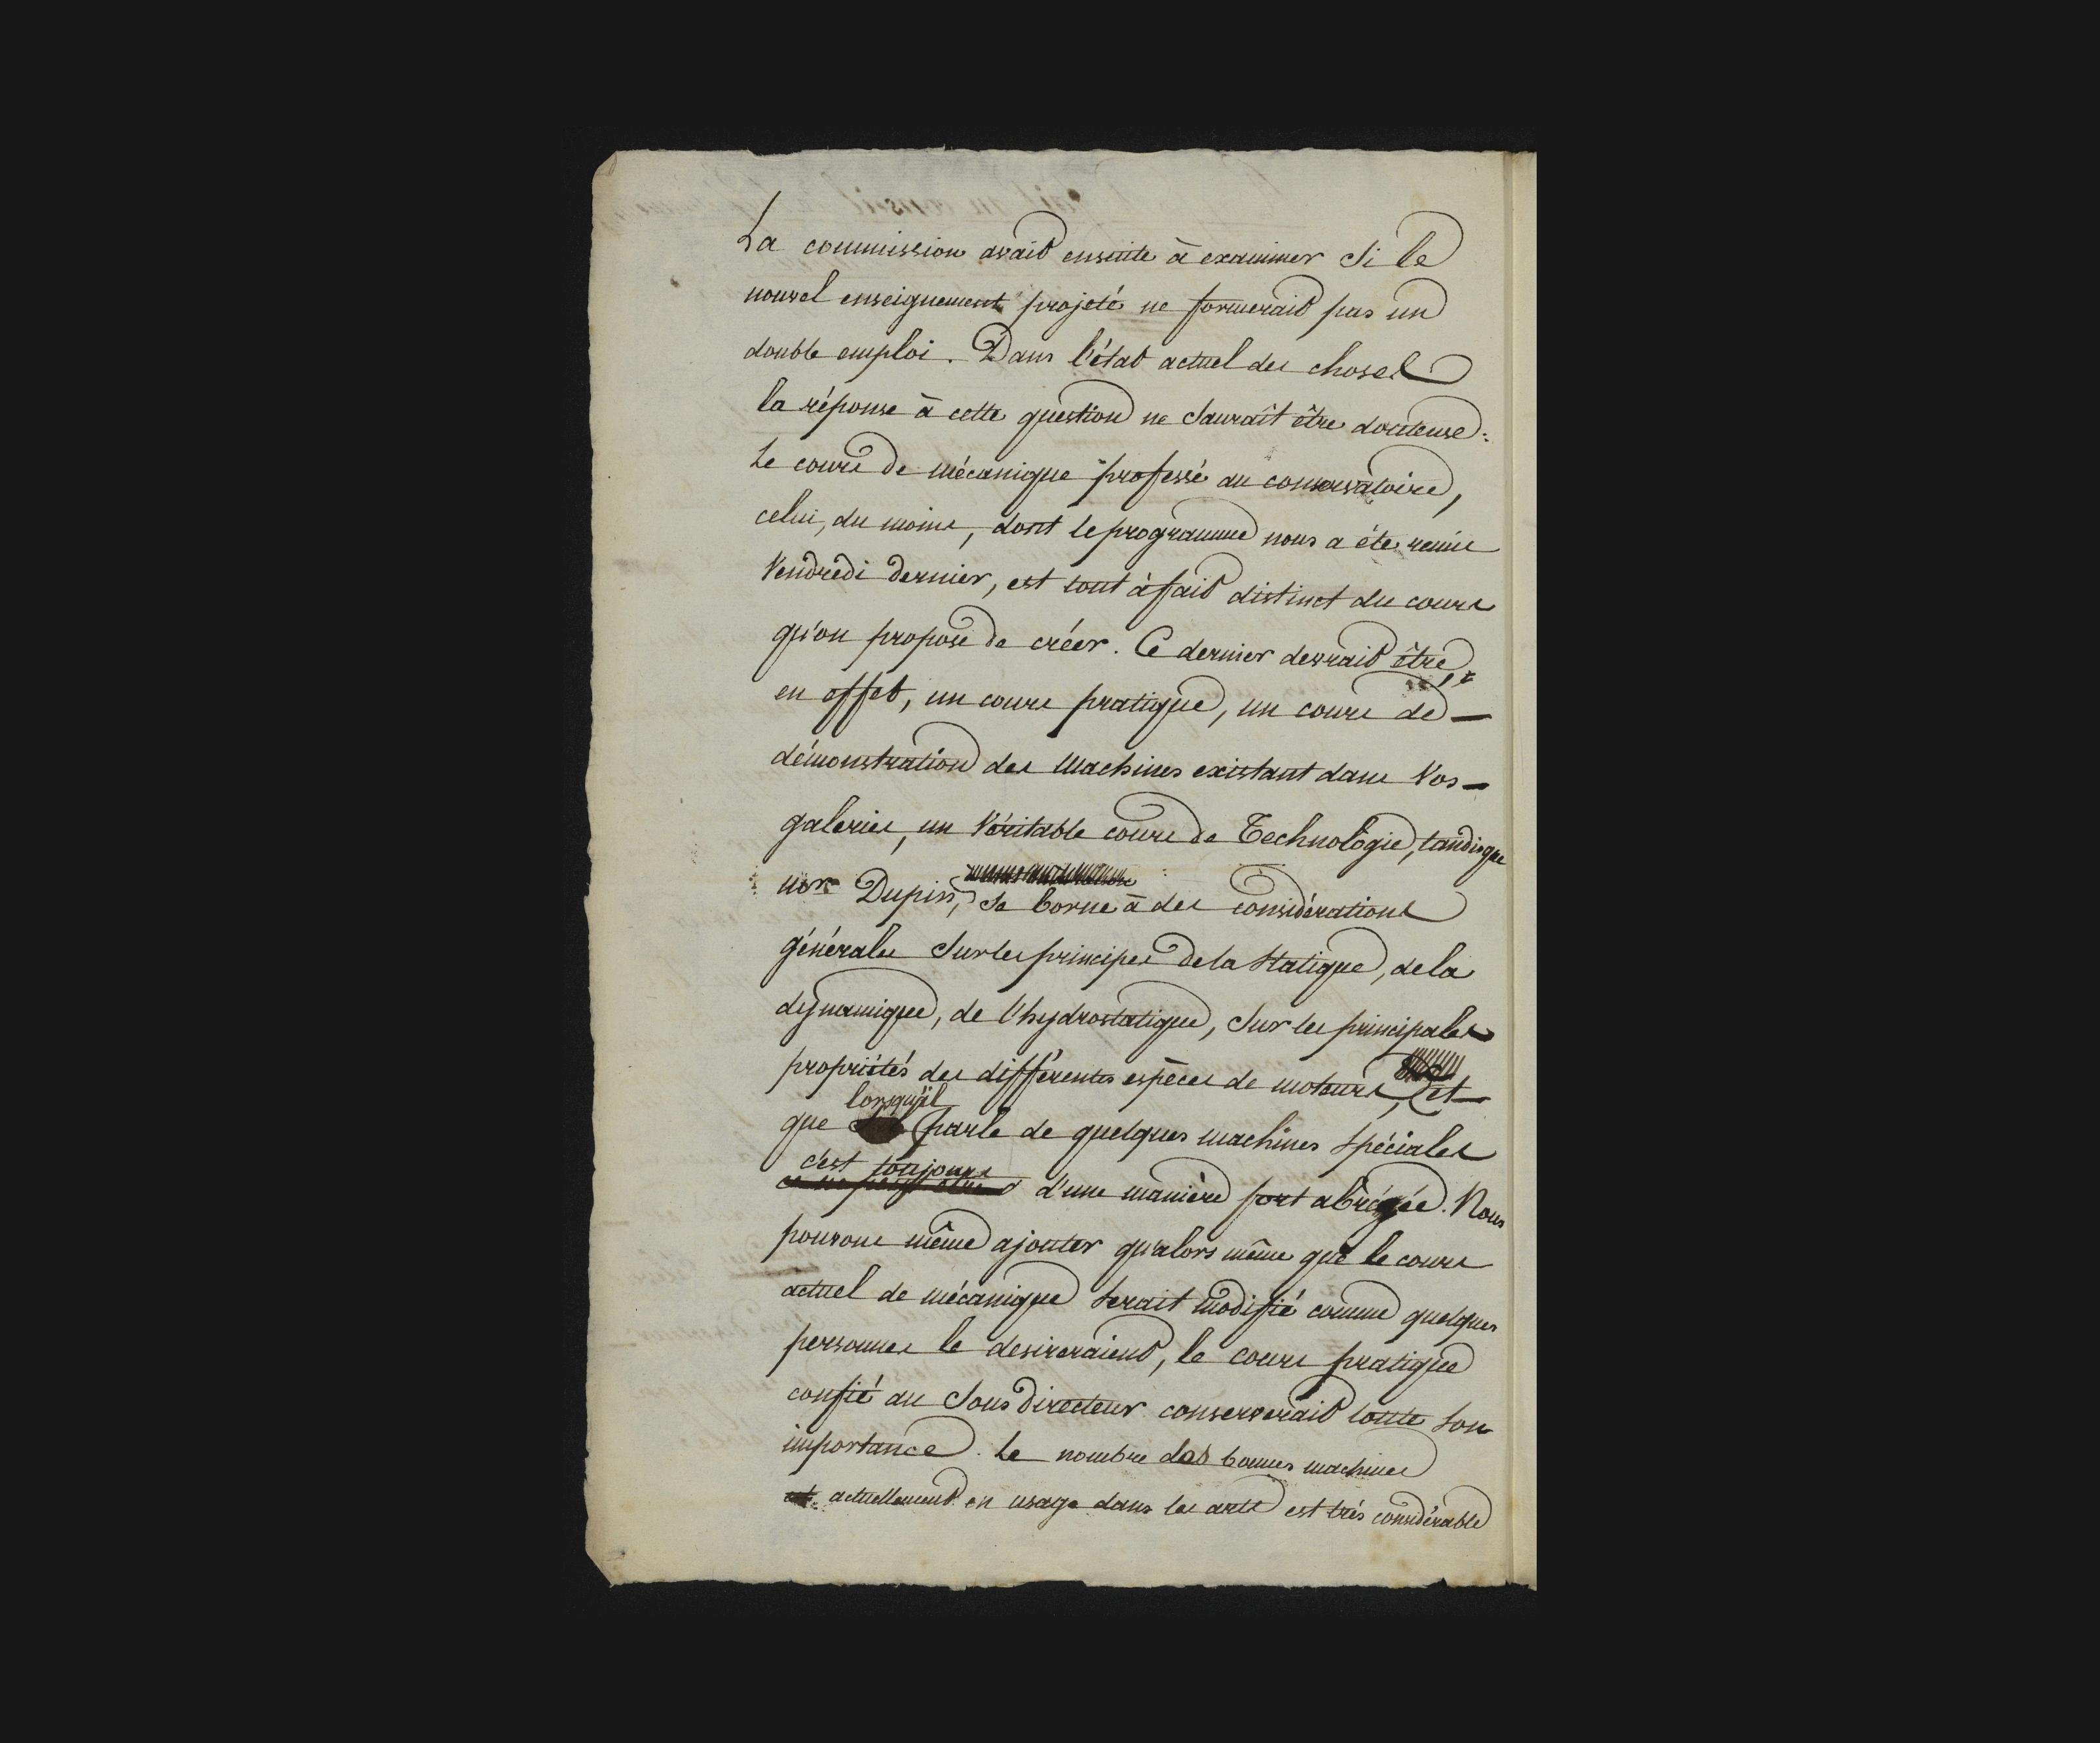 La commission avait ensuite à examiner si le
nouvel enseignement projeté ne formerait pas un
double emploi. Dans l'état actuel des choses
la réponse à cette question ne saurait être douteuse :
Le cours de mécanique professé au conservatoire,
celui, du moins, dont le programme nous a été remis
Vendredi dernier, est tout à fait distinct du cours
qu'on propose de créer. Ce dernier devrait être,
en effet, un cours pratique, un cours de
démonstration des Machines existant dans Vos
galeries, un Véritable cours de Technologie, tandisque
Mr Dupin, se borne à des considérations
générales sur les principes de la statique, de la
dynamique, de l'hydrostatique, sur les principales
propriétés des différentes espèces de moteurs, et
lorsqu'il
que parle de quelques machines spéciales
c'est toujours
d'une manière fort abrégée. Nous
pouvons même ajouter qu'alors même que le cours
actuel de mécanique serait modifié comme quelques
personnes le desireraient, le cours pratique
confié au Sous directeur conserverait toute son
importance. Le nombre des bonnes machines
actuellement en usage dans les arts est très considérable